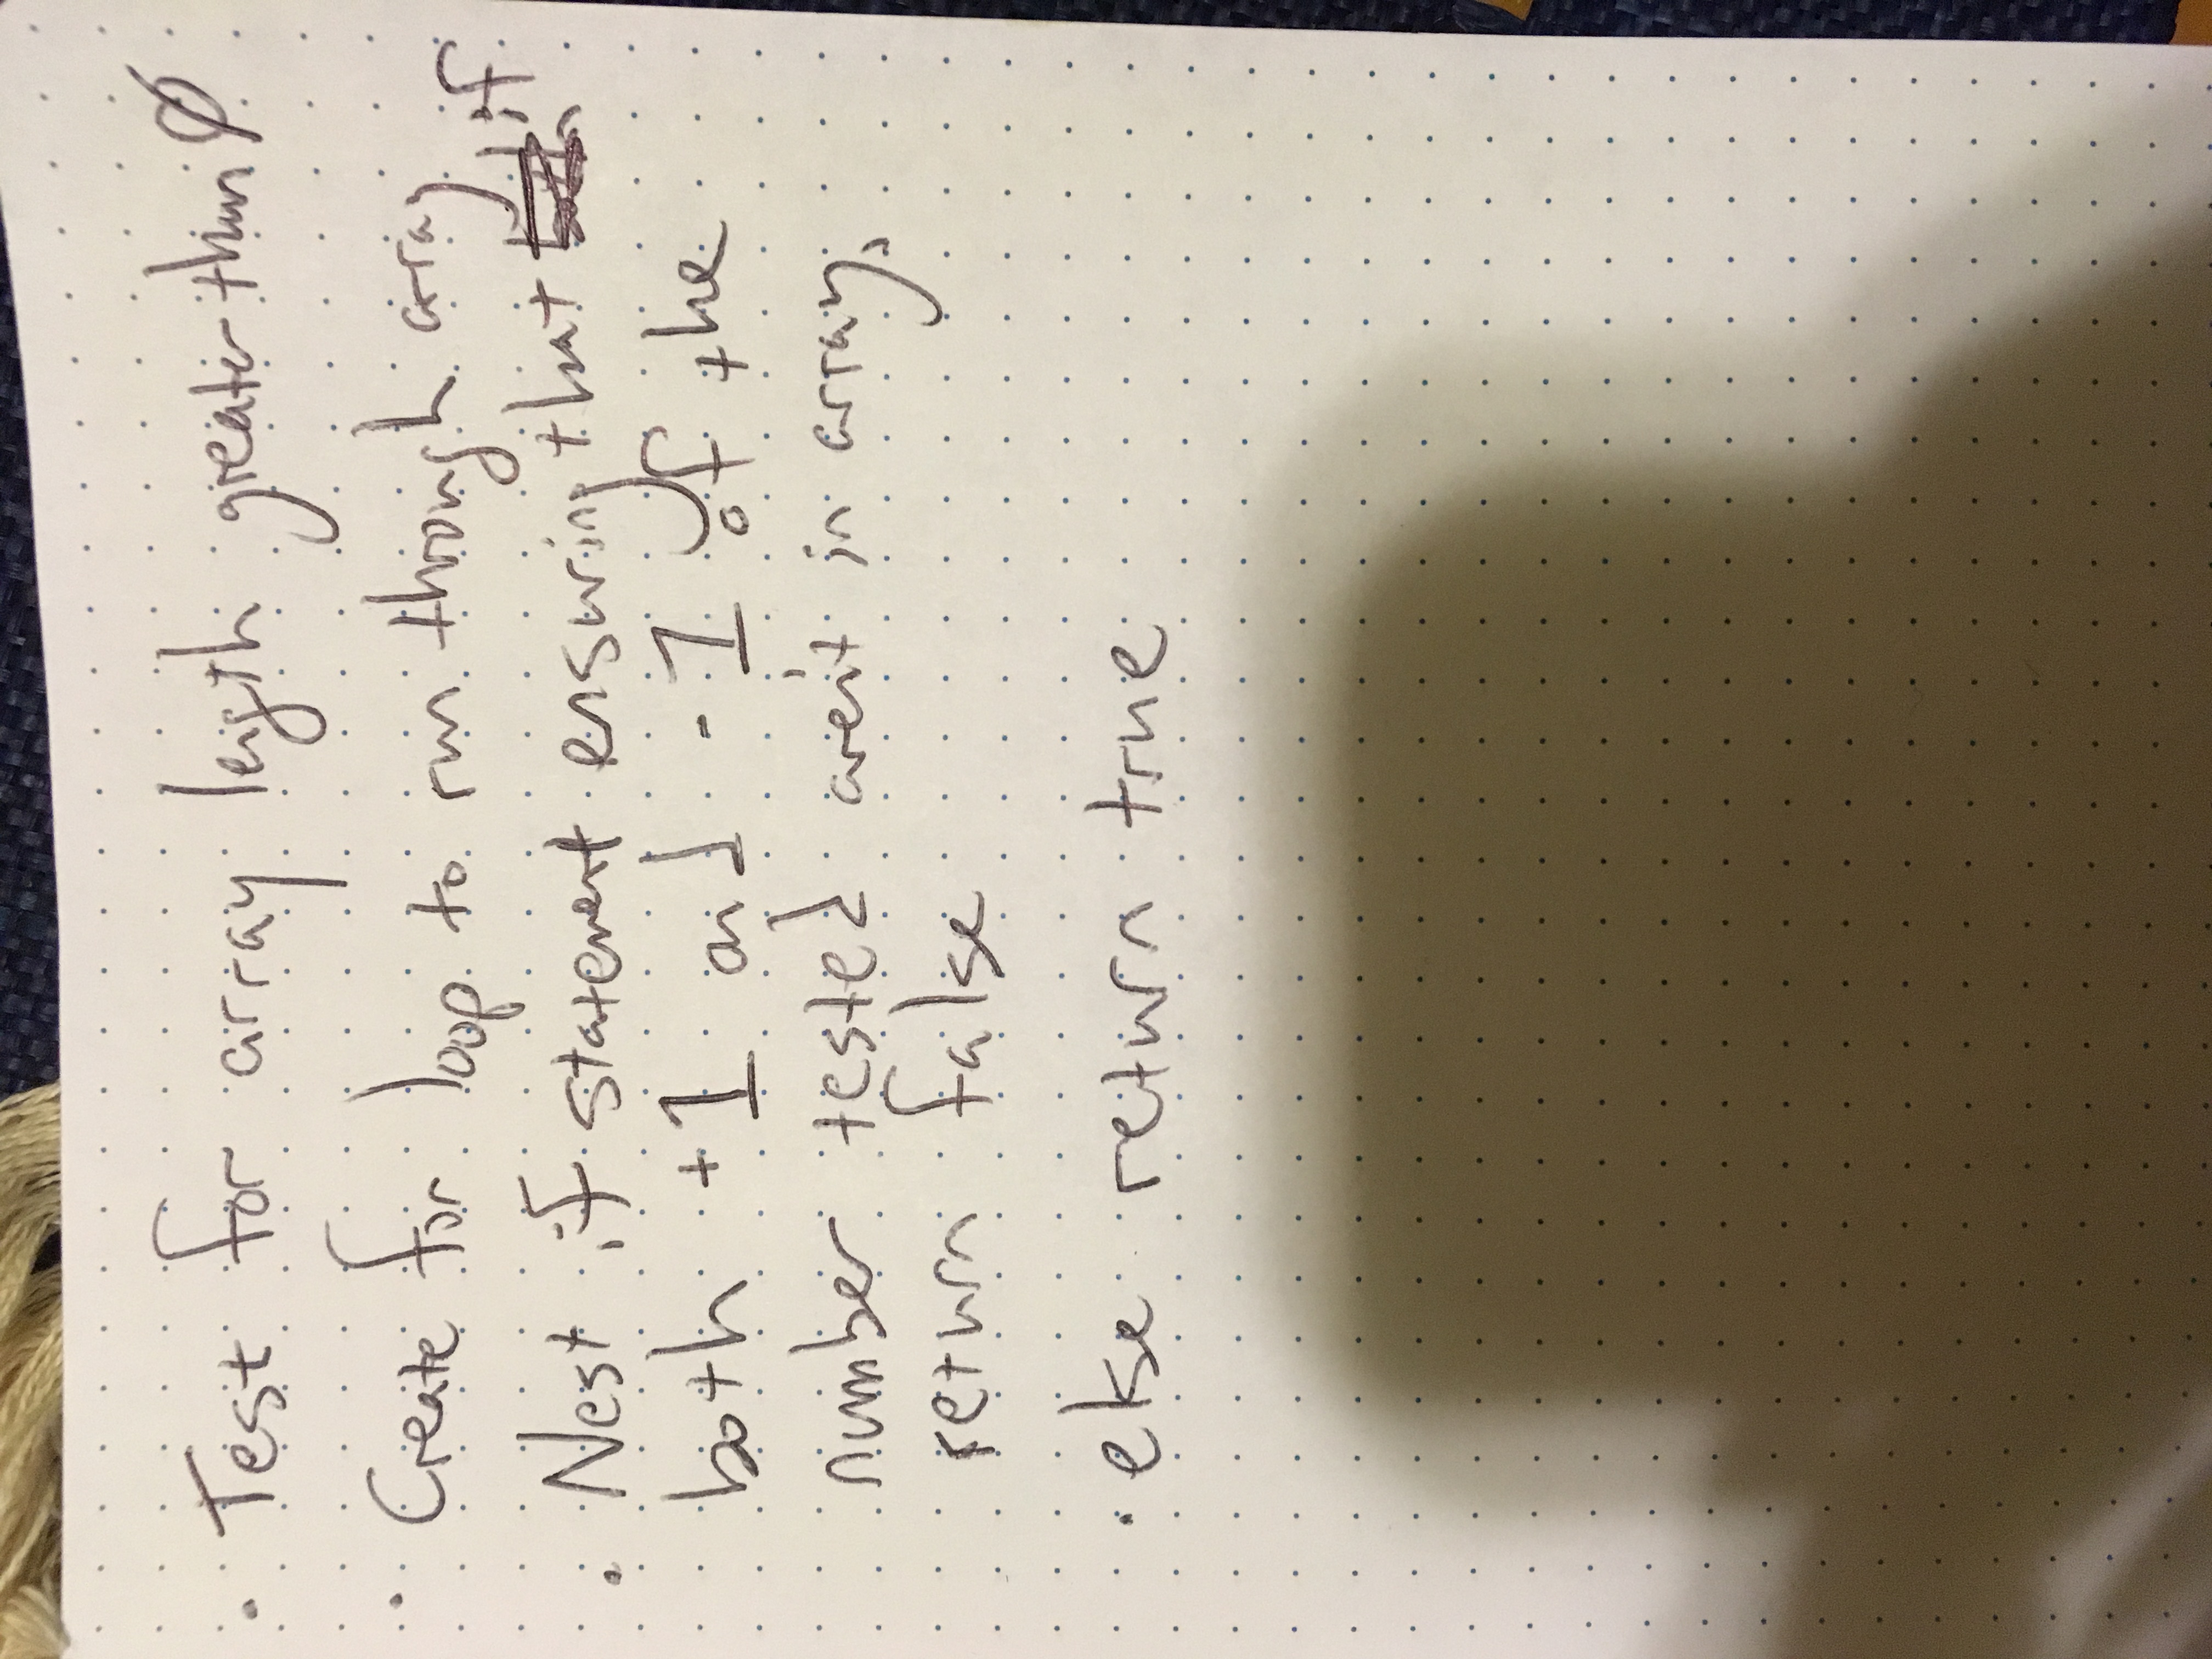 · Test for array length greater than Ø
· Create for loop to run through array
· Nest if statement ensuring that if
both +1 and -1 of the
number tested aren't in array,
return false
· else return true